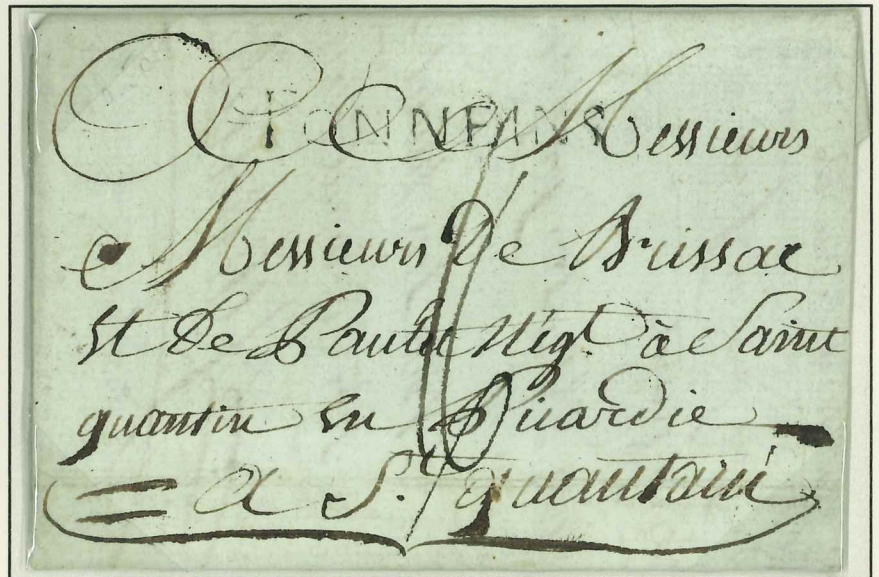 TONNEINS Messieurs
Messieurs De Brissac
Et De Paulet Neg.t à Saint
quantin En Picardie
a S.t quantain